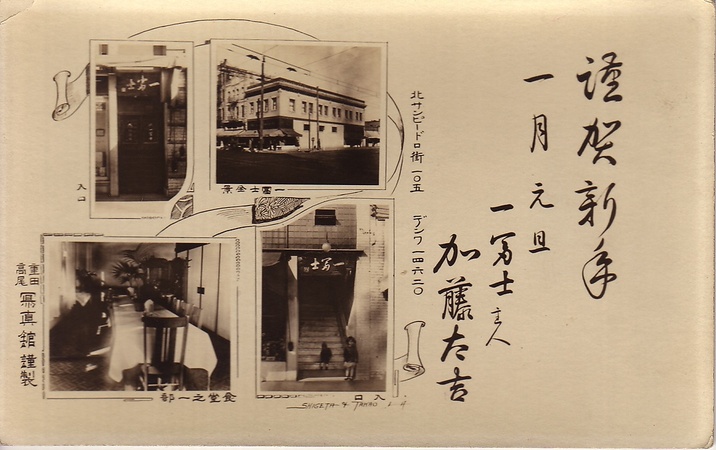 謹賀新年
一月元旦
一冨士主人
加藤太吉
北サンピードロ街一〇五
デンワ一四六二〇
一冨士
入口
一冨士全景
一冨士
入口
食堂之一部
重田
高尾
寫真館謹製
SHIGETA & TAKAO L.A.